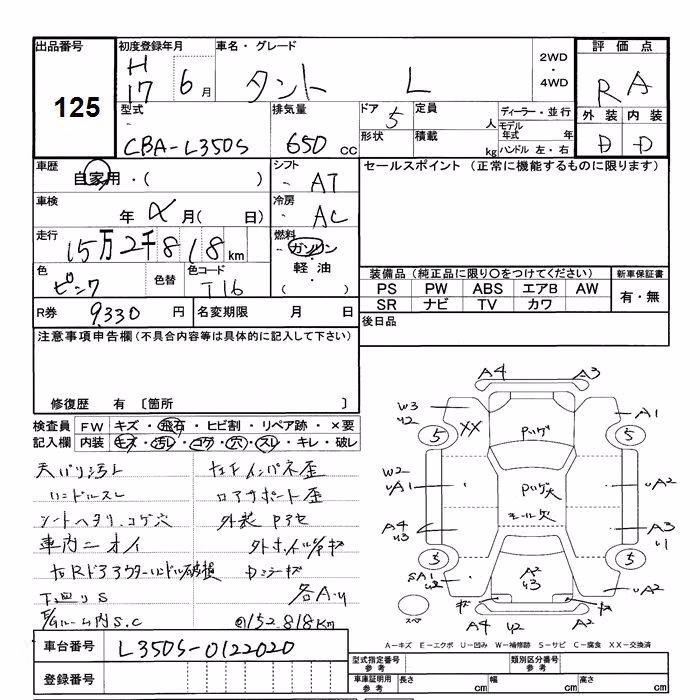 出品番号
125
初度登録年月
H
17 6月
車名・グレード
タント L
2WD
・
4WD
評価点
R A
外装 内装
D D
型式
CBA-L350S
排気量
650 cc
ドア 5
定員 人
形状
積載 kg
ディーラー・並行
モデル年式 年
ハンドル 左・右
車歴
自家用・( )
シフト
AT
車検
年 月( 日)
冷房
AC
走行
15万2千818km
燃料
ガソリン
・
軽油
・
( )
色
ピンク
色替
色コード
T16
R券 9,330 円
名変期限 月 日
セールスポイント (正常に機能するものに限ります)
装備品(純正品に限り○をつけてください)
新車保証書
PS PW ABS エアB AW
SR ナビ TV カワ
有・無
後日品
注意事項申告欄(不具合内容等は具体的に記入して下さい)
修復歴 有 〔箇所 〕
検査員記入欄
FW キズ・飛石・ヒビ割・リペア跡・×要
内装 キズ・汚レ・コゲ・穴・スレ・キレ・破レ
天バリ汚レ
ハンドルスレ
シートヘタリ.コゲ穴
車内ニオイ
下廻りS
右センインパネ歪
ロアサポート歪
外装
外ホイルキャキズ
ウインカーキズ
各A・U
◎152,818km
A4 A3
W3
U2
XX
A1
5 5
W2
UA1
UA2
A4
U3
A3
U1
5 5
SA1
U2
UA2
A2
U3
キズ キズ
A4 U2 A2
スペア
A=キズ E=エクボ U=凹み W=補修跡 S=サビ C=腐食 XX=交換済
車台番号 L350S-0122020
登録番号
型式指定番号
参考
類別区分番号
参考
車庫証明用
参考
長さ cm
幅 cm
高さ cm